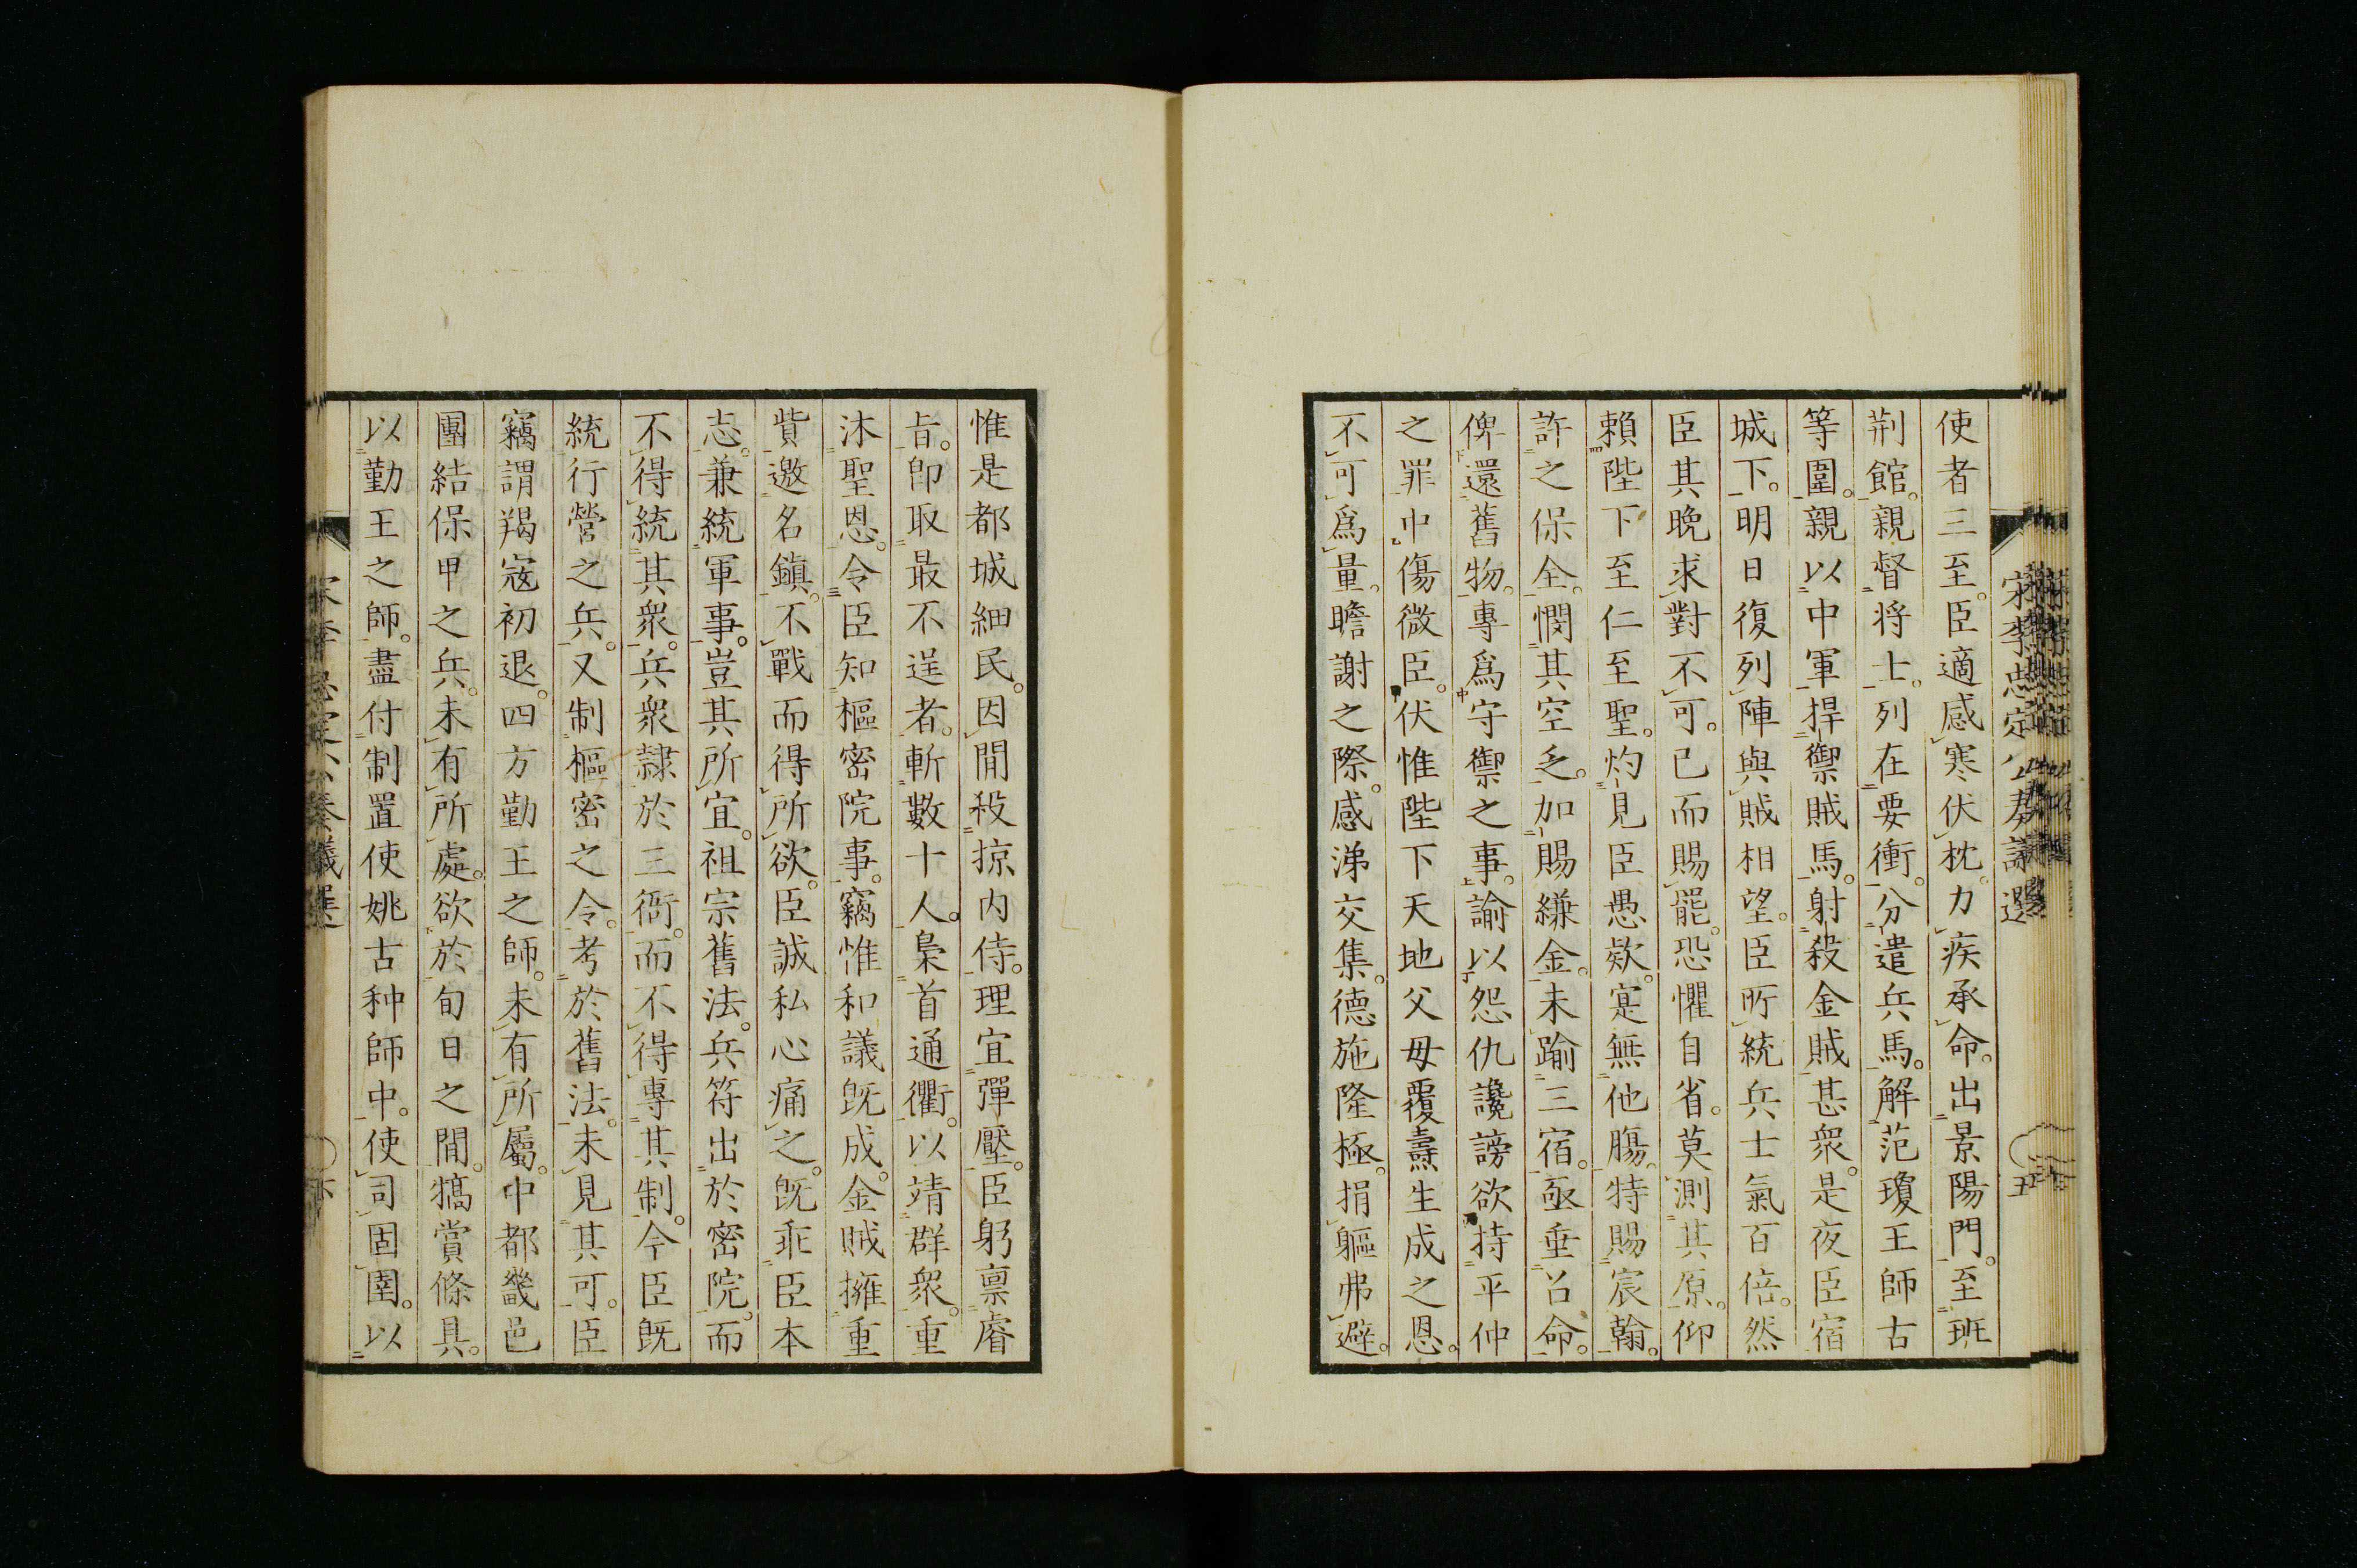 宋李忠定公奏議選
五
使者三至。臣適感寒伏枕。力疾承命。出景陽門。至班
荆館。親督将士。列在要衝。分遣兵馬。解范瓊王師古
等圍。親以中軍捍禦賊馬。射殺金賊甚衆。是夜臣宿
城下。明日復列陣與賊相望。臣所統兵士氣百倍。然
臣其晩求對不可。已而賜罷。恐懼自省。莫測其原。仰
賴陛下至仁至聖。灼見臣愚欵。寔無他腸。特賜宸翰。
許之保全。憫其空乏。加賜縑金。未踰三宿。亟垂召命。
俾還舊物。專爲守禦之事。諭以怨仇讒謗欲持平仲
之罪中傷微臣。伏惟陛下天地父母覆燾生成之恩。
不可爲量。瞻謝之際。感涕交集。德施隆極。捐軀弗避。
惟是都城細民。因閒殺掠内侍。理宜彈壓。臣躬稟睿
旨。卽取最不逞者。斬數十人。梟首通衢。以靖群衆。重
沐聖恩。令臣知樞密院事。竊惟和議既成。金賊擁重
貲邀名鎮。不戰而得所欲。臣誠私心痛之。既乖臣本
志。兼統軍事。豈其所宜。祖宗舊法。兵符出於密院。而
不得統其衆。兵衆隷於三衙。而不得專其制。今臣既
統行營之兵。又制樞密之令。考於舊法。未見其可。臣
竊謂羯寇初退。四方勤王之師。未有所屬。中都畿邑
團結保甲之兵。未有所處。欲於旬日之間。犒賞條具。
以勤王之師。盡付制置使姚古种師中。使司固圉。以